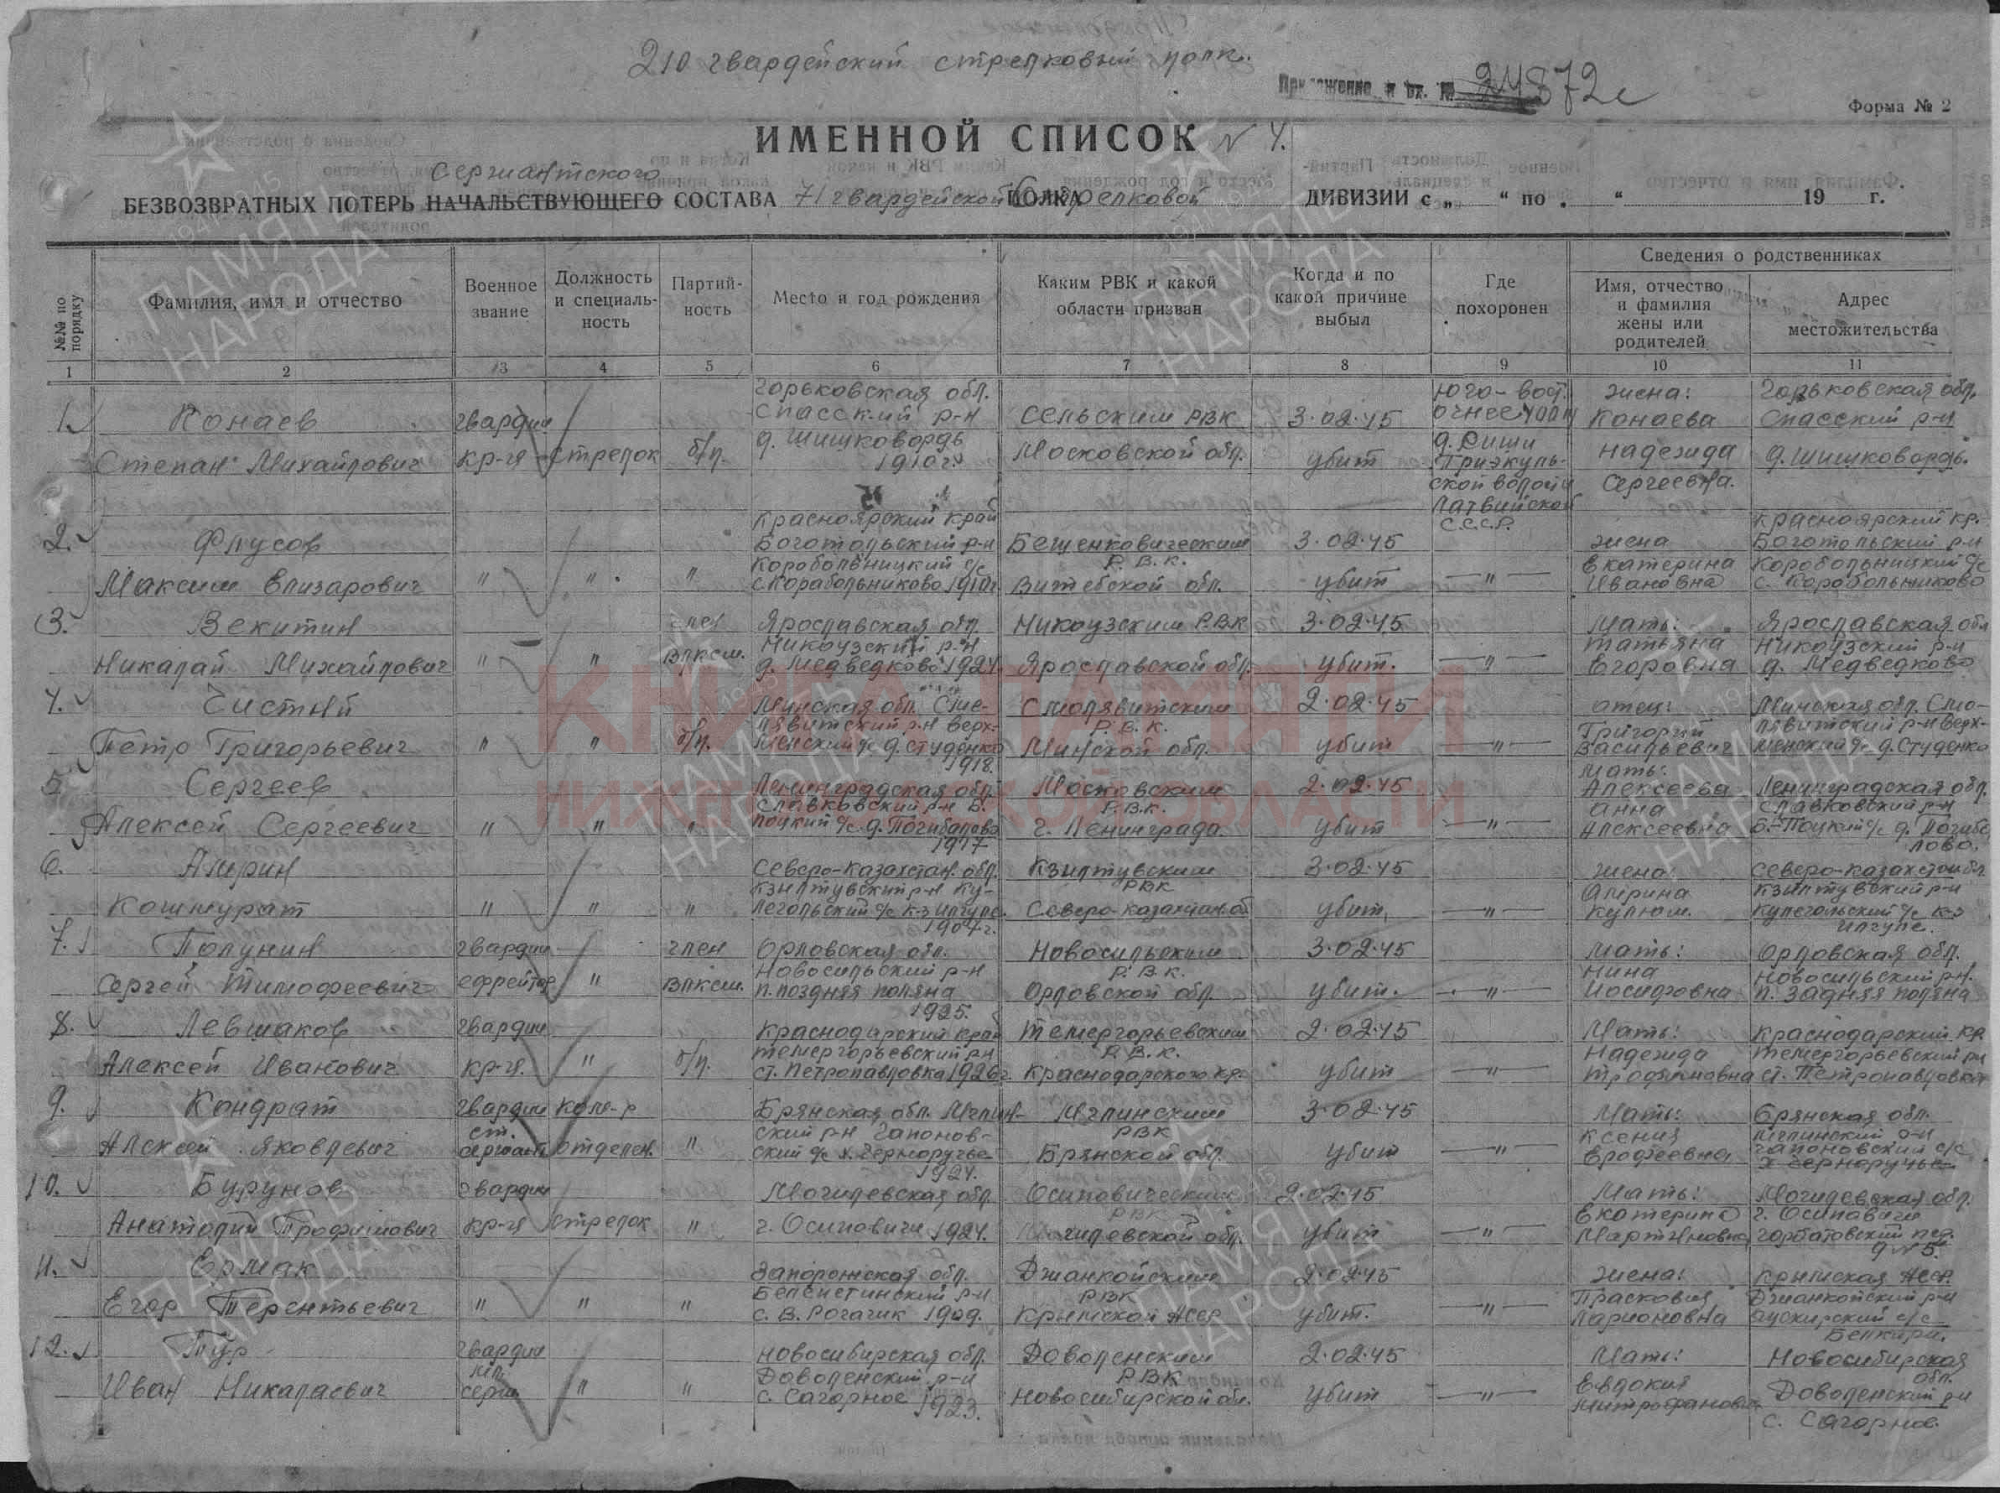 210 гвардейский стрелковый полк.
Приложение к вх. № 24872с
Форма № 2
ИМЕННОЙ СПИСОК N 4.
сержантского
БЕЗВОЗВРАТНЫХ ПОТЕРЬ НАЧАЛЬСТВУЮЩЕГО СОСТАВА 71 гвардейской стрелковой ПОЛКА ДИВИЗИИ с „ “ по „ “ 19 г.
№№ по порядку
Фамилия, имя и отчество
Военное звание
Должность и специальность
Партийность
Место и год рождения
Каким РВК и какой области призван
Когда и по какой причине выбыл
Где похоронен
Сведения о родственниках
Имя, отчество и фамилия жены или родителей
Адрес местожительства
1 2 3 4 5 6 7 8 9 10 11
1. Конаев Степан Михайлович
гвардии кр-ц
стрелок
б/п.
Горьковская обл. Спасский р-н д. Шишковердь 1910 г.
Сельским РВК Московской обл.
3.02.45 убит
юго-вост. д. Латвийской С.С.С.Р.
жена: Конаева Надежида Сергеевна.
Горьковская обл. Спасский р-н д. Шишковердь.
2. Флусов Максим Елизарович
" " "
Красноярский край Боготольский р-н с. Корабольниково 1910 г.
Бешенковическим Р.В.К. Витебской обл.
3.02.45 убит
— " —
жена Екатерина Ивановна
Красноярский кр. Боготольский р-н с. Коробольниково
3. Векшин Никалай Михайлович
" "
член ВЛКСМ.
Ярославская обл. Никоузский р-н д. Медведково 1924.
Никоузским РВК Ярославской обл.
3.02.45 убит.
— " —
Мать: Татьяна Егоровна
Ярославская обл. Никоузский р-н д. Медведково
4. Чистый Пётр Григорьевич
" "
б/п.
Минская обл. д. Студенка 1918.
Смолявитским Р.В.К. Минской обл.
2.02.45 убит
— " —
отец: Григорий Васильевич
Минская обл. Смолявитский р-н д. Студенка
5. Сергеев Алексей Сергеевич
" " "
Ленинградская обл. Славковский р-н д. Погибалово 1917
Московским Р.В.К. г. Ленинграда
2.02.45 убит
— " —
Мать: Алексеева Анна Алексеевна
Ленинградская обл. Славковский р-н
6. Амрин Кошмурат
" " "
Северо-Казахстан. обл. Кзылтувский р-н 1907 г.
Кзылтувским РВК Северо-Казахстан. об
3.02.45 убит,
— " —
жена: Амрина Кулюш.
Кзылтувский р-н
7. Полунин Сергей Тимофеевич
гвардии ефрейтор
"
член ВЛКСМ.
Орловская обл. Новосильский р-н п. поздняя поляна 1925.
Новосильским Р.В.К. Орловской обл.
3.02.45 убит.
— " —
Мать: Нина Иосифовна
Орловская обл. Новосильский р-н. п. Задняя поляна
8. Левшаков Алексей Иванович
гвардии кр-ц.
"
б/п.
Краснодарский край Темергорьевский р-н ст. Петропавловка 1926 г.
Темергорьевским Р.В.К. Краснодарского кр.
2.02.45 убит
— " —
Мать: Надежида Трофимовна
Краснодарский кр. Темергорьевский р-н ст. Петропавловка
9. Кондрат Алексей Яковлевич
гвардии ст. сержант
ком-р отделен.
"
Брянская обл. Мглинский р-н Гапоновский с/с х. Черноручье 1924.
Мглинским РВК Брянской обл.
3.02.45 убит
— " —
Мать: Ксения Ерофеевна
Брянская обл. Мглинский р-н Гапоновский с/с х Черноручье
10. Бурунов Анатолий Трофимович
гвардии кр-ц
стрелок
"
Могилевская обл. г. Осиповичи 1924.
Осиповическим РВК Могилевской обл.
2.02.45 убит
— " —
Мать: Екатерина Мартыновна
Могилевская обл. г. Осиповичи
11. Ермак Егор Терентьевич
" " "
Запорожская обл. с. В. Рогачик 1909.
Джанкойским РВК Крымской АССР
2.02.45 убит.
— " —
жена: Прасковия Ларионовна
Крымская АССР. Джанкойский р-н
12. Тур Иван Никалаевич
гвардии мл. серж
" "
Новосибирская обл. Доволенский р-н с. Сагорное 1923.
Доволенским РВК Новосибирской обл.
2.02.45 убит
— " —
Мать: Евдокия Митрофановна
Новосибирская обл. Доволенский р-н
КНИГА ПАМЯТИ
НИЖЕГОРОДСКОЙ ОБЛАСТИ
ПАМЯТЬ НАРОДА
1941-1945